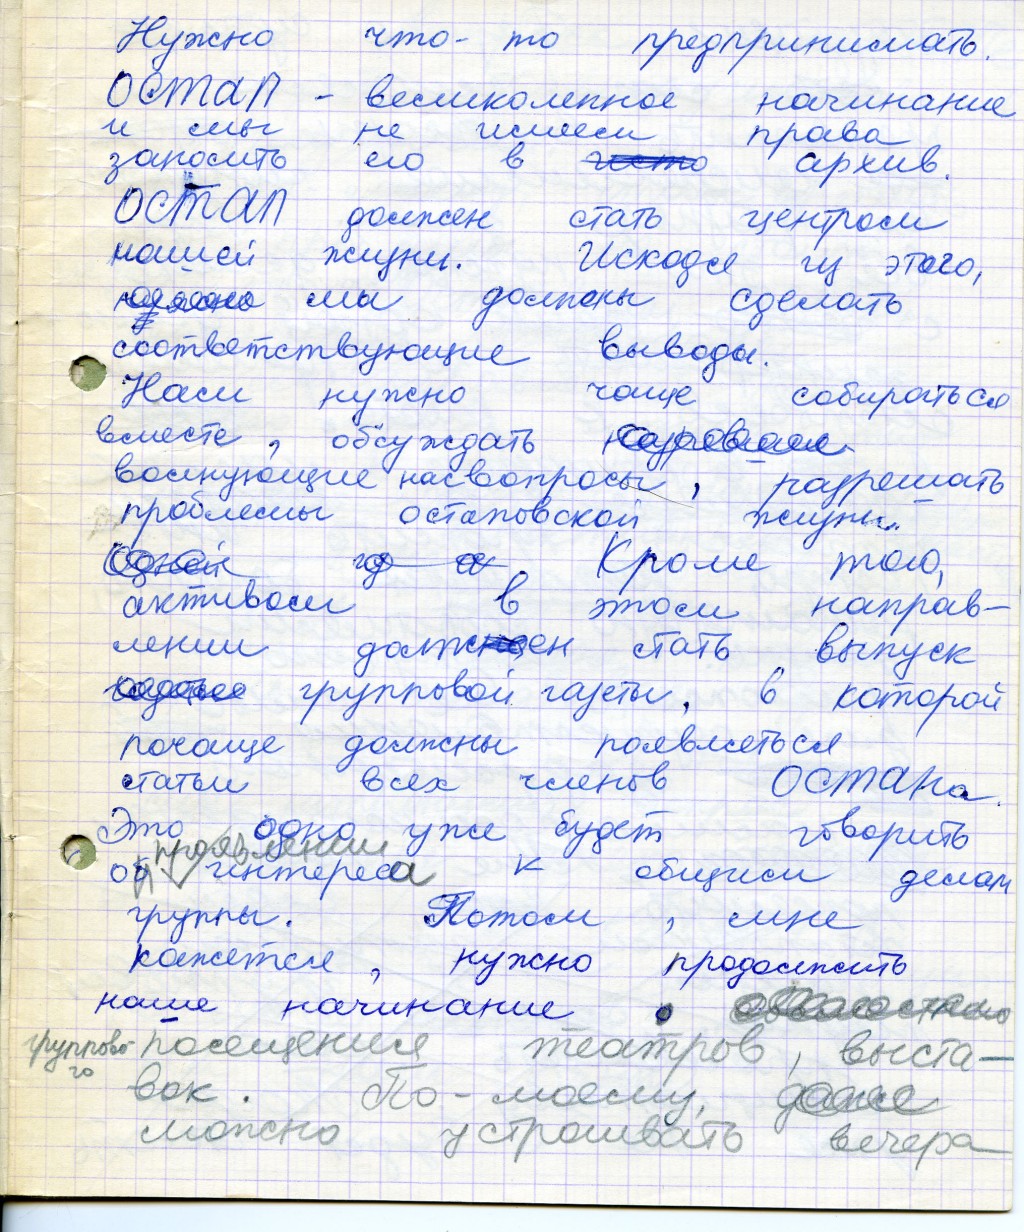 Нужно что-то предпринимать.
ОСТАП - великолепное начинание
и мы не имеем права
заносить его в архив.
ОСТАП должен стать центром
нашей жизни. Исходя из этого,
мы должны сделать
соответствующие выводы.
Нам нужно чаще собираться
вместе, обсуждать
волнующие нас вопросы, разрешать
проблемы остаповской жизни.
Кроме того,
активом в этом направ-
лении должен стать выпуск
групповой газеты, в которой
почаще должны появляться
статьи всех членов ОСТАПа.
Это одно уже будет говорить
проявлении
об интереса к общим делам
группы. Потом, мне
кажется, нужно продолжить
наше начинание о
группово-
го
посещения театров, выста-
вок. По-моему, даже
можно устраивать вечера